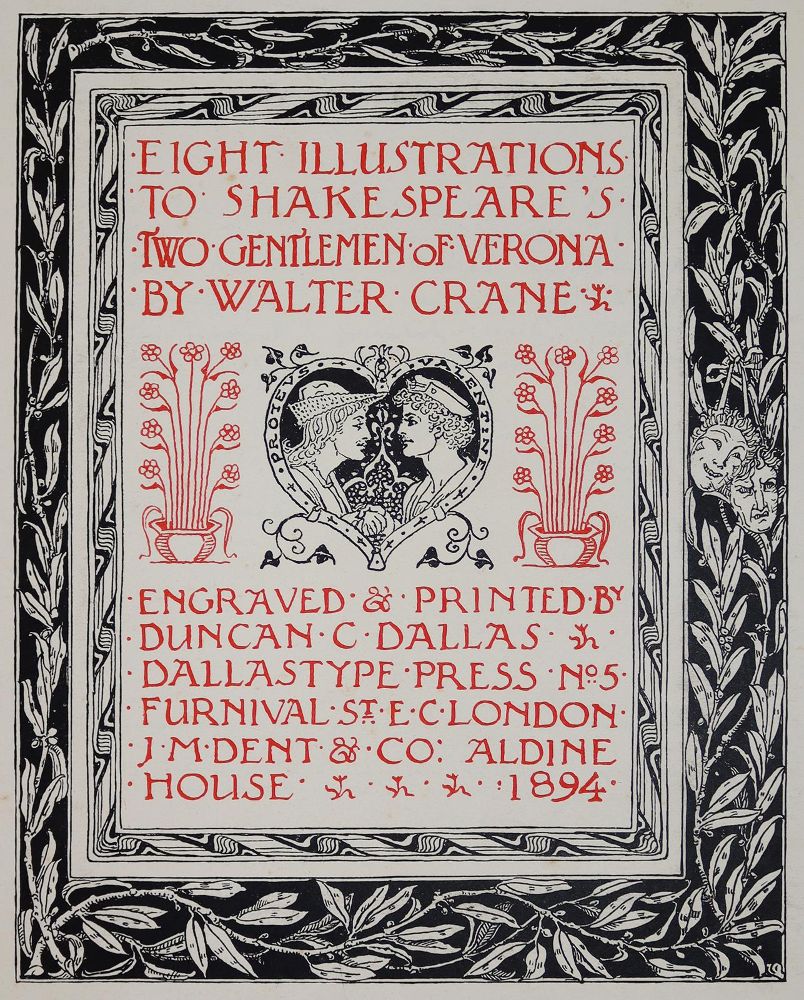 ·EIGHT· ILLUSTRATIONS·
·TO· SHAKESPEARE'S·
·TWO·GENTLEMEN·OF·VERONA·
·BY·WALTER·CRANE·
·PROTEVS·
VALENTINE·
·ENGRAVED·&·PRINTED·BY
·DUNCAN·C·DALLAS·
·DALLASTYPE·PRESS·No:5·
·FURNIVAL·ST·E·C·LONDON·
·J·M·DENT·&·CO: ALDINE
·HOUSE· · · :1894·